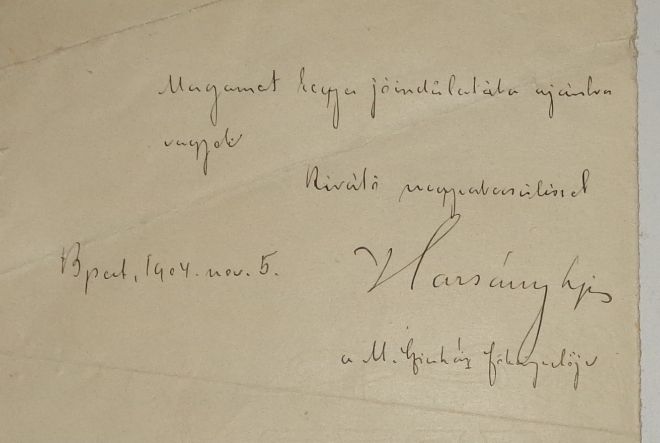 Magamat kegyes jóindulatába ajánlva
vagyok
Kiváló nagyrabecsüléssel
Bpest, 1904. nov. 5.
Harsányi
a M. Szinház